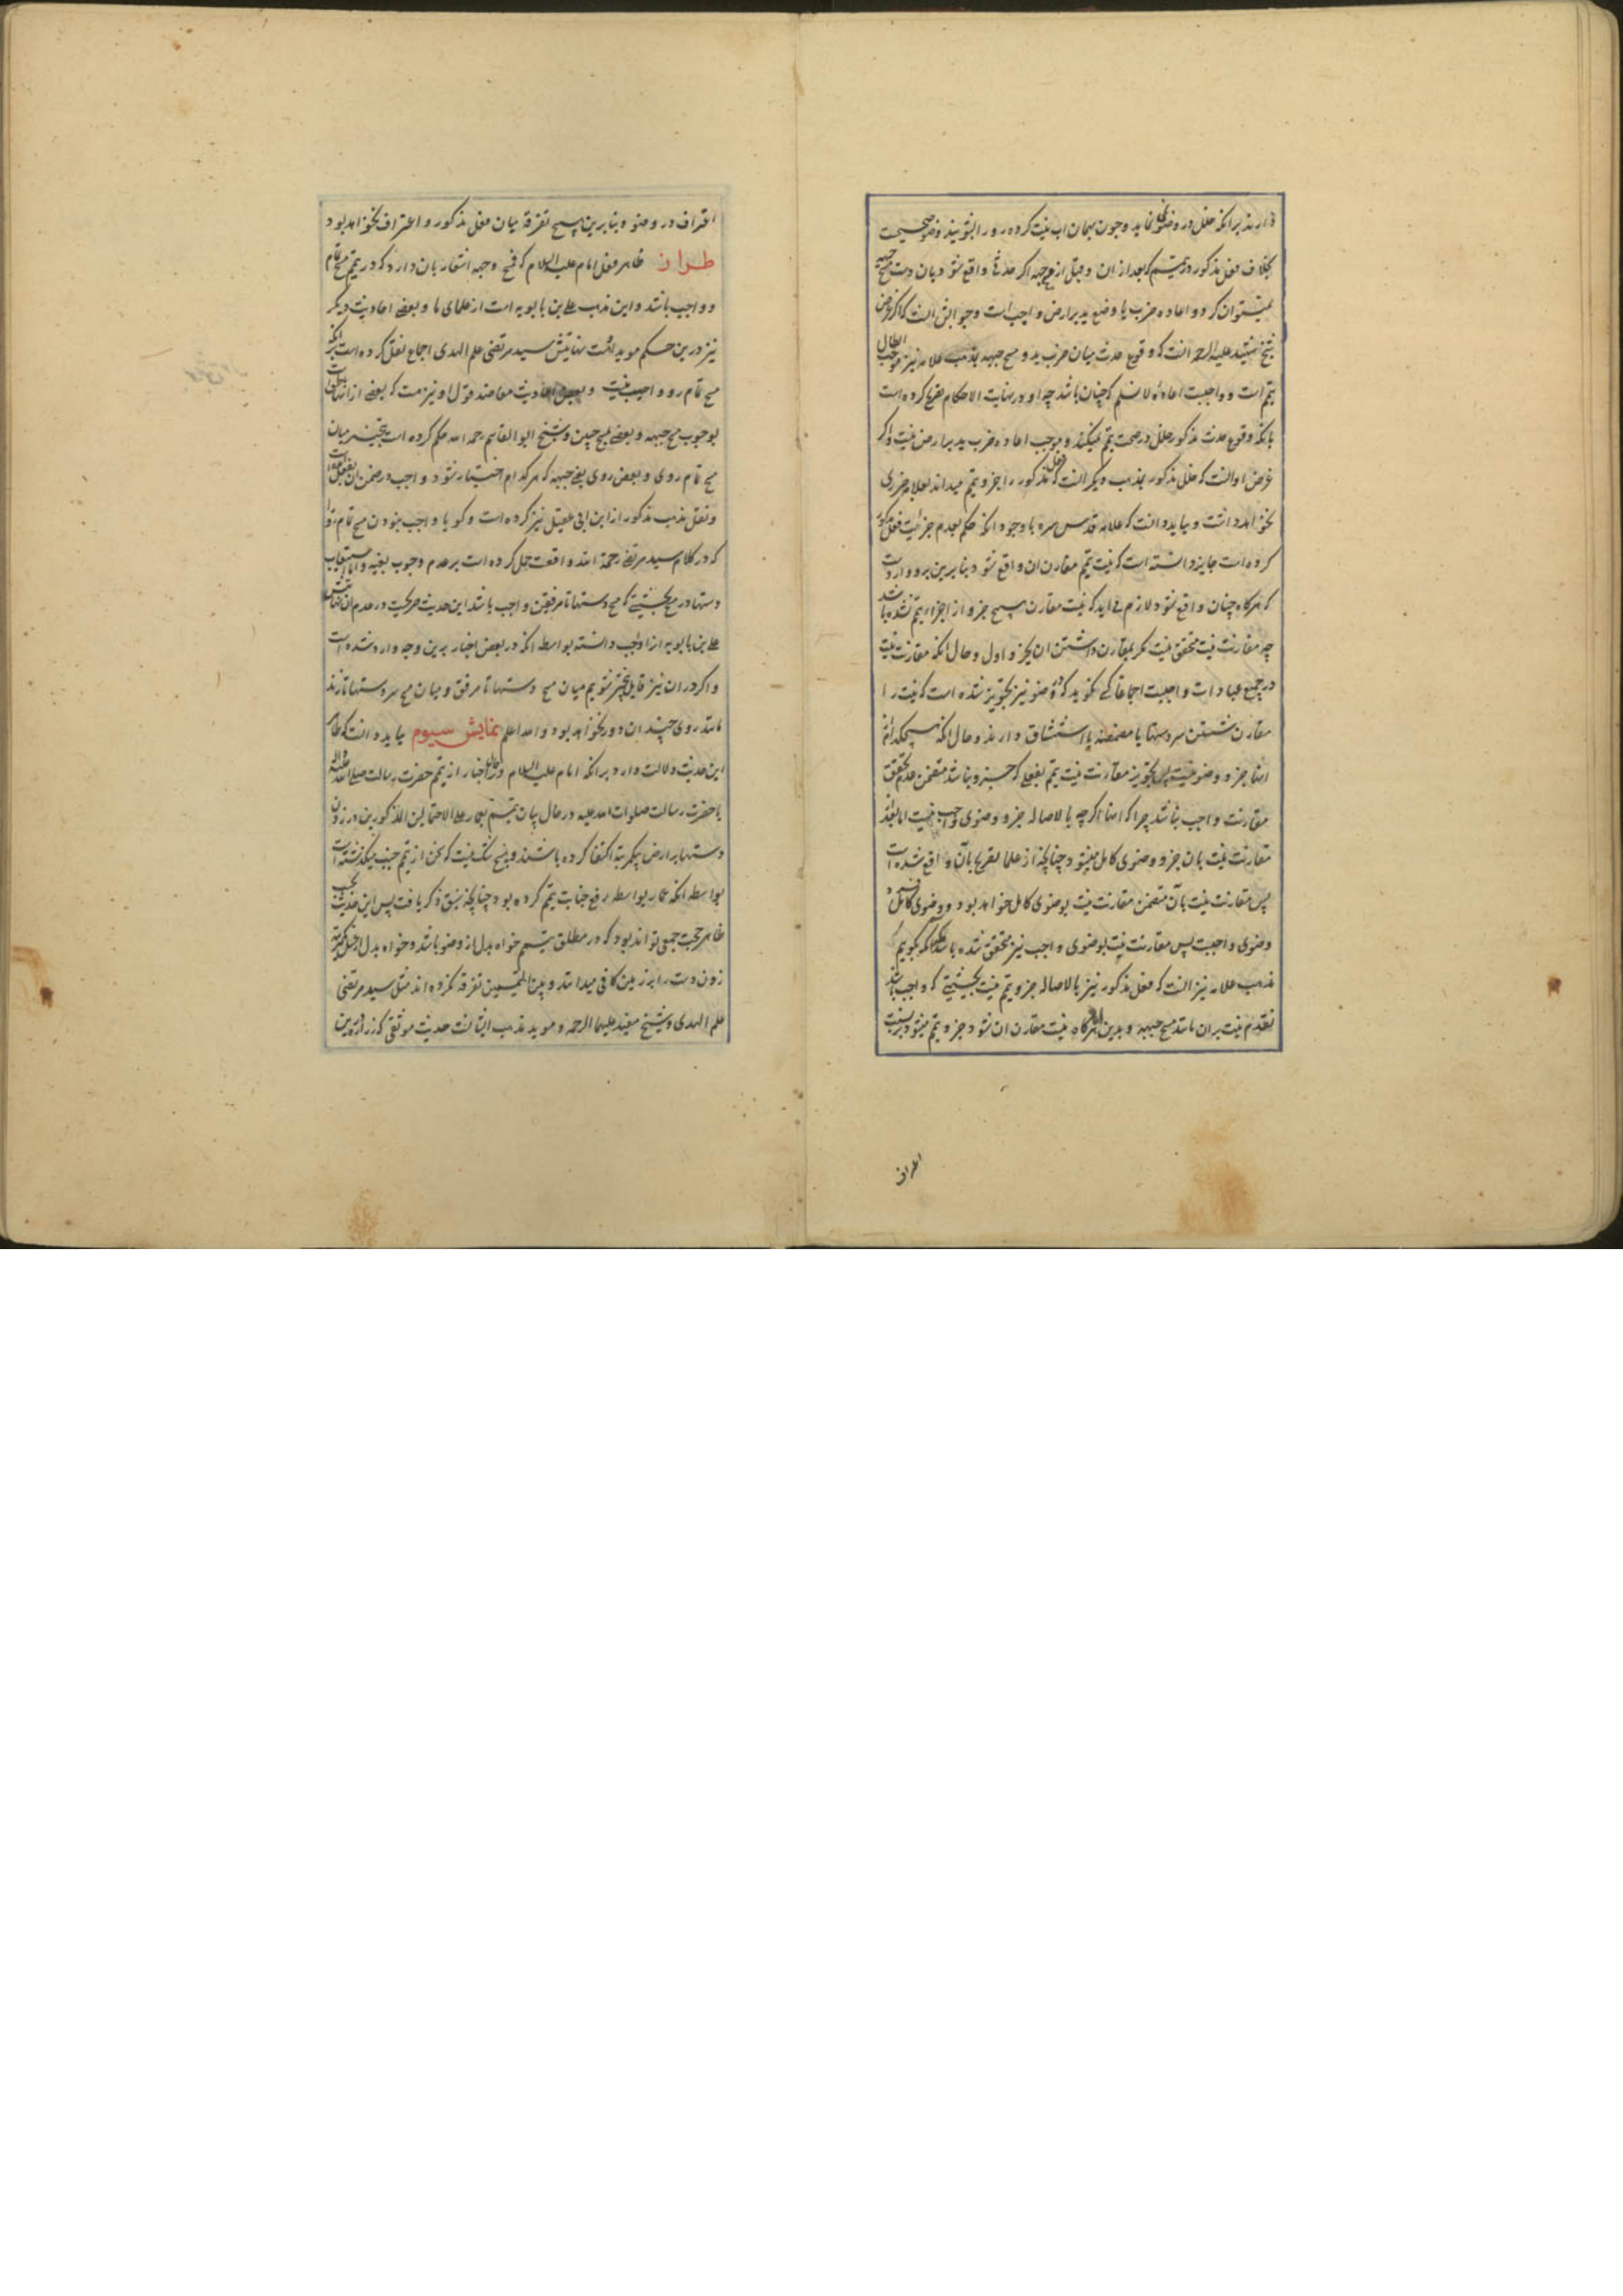 دارند برانکه خللی در وضوی نماید و چون بهمان اب نیت کرده رو را بشویند وضو صحیحست
بخلاف فعل مذکور در تیمم که بعد از ان و قبل از مسح جبهه اگر حدثی واقع شود بان دست مسح جبهه
نمیتوان کرد و اعاده ضرب یا وضع ید بر ارض واجب است و جوابش انست که اگر غرض
شیخ شهید علیه الرحمه انست که وقوع حدث میان ضرب ید و مسح جبهه بمذهب علامه نیز موجب ابطال
تیمم است و واجبست اعاده لا نسلم که چنان باشد چه او در نهایت الاحکام تصریح کرده است
بانکه وقوع حدث مذکور خلل در صحت تیمم نمیکند و موجب اعاده ضرب ید بر ارض نیست و اگر
غرض او انست که خلل مذکور بمذهب دیگر انست که فعل مذکور را جزو تیمم میداند بعلامه ضرری
نخواهد داشت و بباید دانست که علامه قدس سره با وجود انکه حکم بعدم جزئیت فعل مذکور
کرده است جایز دانسته است که نیت تیمم مقارن ان واقع شود بنابرین برو واردست
که هرگاه چنان واقع شود لازم می اید که نیت مقارن هیچ جزو از اجزاء تیمم نشده باشد
چه مقارنت نیت متحقق نیست مگر بمقارن داشتن ان بجزو اول و حال انکه مقارنت نیت
در جمیع عبادات واجبست اجماعا کسی نگوید که در وضو نیز تجویز شده است که نیت را
مقارن شستن سر دستها یا مضمضه یا استنشاق دارند و حال انکه هیچکدام از
اینها جزو وضو نیست پس تجویز مقارنت نیت تیمم بفعلی که جزو نباشد متضمن عدم تحقق
مقارنت واجب نباشد چرا که اینها اگر چه بالاصاله جزو وضوی واجب نیست اما بعد از
مقارنت نیت بان جزو وضوی کامل میشود چنانچه از علما تصریح بآن واقع شده است
پس مقارنت نیت بآن متضمن مقارنت نیت بوضوی کامل خواهد بود و وضوی کامل
وضوی واجبست پس مقارنت نیت بوضوی واجب نیز متحقق شده باشد مگر آنکه گویم
مذهب علامه نیز انست که فعل مذکور نیز بالاصاله جزو تیمم نیست بحیثیتی که واجب باشد
تقدم نیت بران مانند مسح جبهه و بدین هرگاه نیت مقارن ان شود جزو تیمم میشود بنسبت
اغراف
اغراف در وضو و بنابرین هیچ تفرقه میان فعل مذکور و اغتراف نخواهد بود
طراز ظاهر فعل امام علیه السلام که فمسح وجهه اشعار بان دارد که در تیمم مسح تمام
رو واجب باشد و این مذهب علی بن بابویه است از علمای ما و بعضی احادیث دیگر
نیز درین حکم موید اوست نهایتش سید مرتضی علم الهدی اجماع نقل کرده است برانکه
مسح تمام رو واجب نیست و بعضی احادیث معاضد قول او نیز هست که بعضی از انها
بوجوب مسح جبهه و بعضی بمسح جبین و شیخ ابو القاسم رحمه الله حکم کرده است بتخییر میان
مسح تمام روی و بعض روی یعنی جبهه که هر کدام اختیار شود واجب در ضمن ان بفعل
و نقل مذهب مذکور از ابن ابی عقیل نیز کرده است و گویا واجب نبودن مسح تمام رو را
که در کلام سید مرتضی رحمة الله واقعست حمل کرده است بر عدم وجوب بعینه و اما استیعاب
دستها در مسح بحیثیتی که مسح دستها تا مرفقین واجب باشد این حدیث صریحست در عدم ان
علی بن بابویه انرا واجب دانسته بواسطه انکه در بعض اخبار برین وجه وارد شده است
و اگر در ان نیز قایل بتخییر شویم میان مسح دستها تا مرفق و میان مسح سر دستها تا زند
مانند روی چندان دور نخواهد بود و الله اعلم نمایش سیوم بباید دانست که ظاهر
این حدیث دلالت دارد برانکه امام علیه السلام در اخبار از تیمم حضرت رسالت صلی الله علیه و اله
یا حضرت رسالت صلوات الله علیه در حال بیان تیمم بعمار علی الاحتمالین المذکورین در زدن
دستها بر ارض بیکمرتبه اکتفا کرده باشند و هیچ شک نیست که سخن از تیمم جنب میگذشته است
بواسطه انکه عمار بواسطه رفع جنابت تیمم کرده بود چنانچه سبق ذکر یافت پس این حدیث بحسب
ظاهر حجت جمعی تواند بود که در مطلق تیمم خواه بدل از وضو باشد و خواه بدل از غسل یکمرتبه
زدن دست را بر زمین کافی میدانند و بین التیممین تفرقه نکرده اند مثل سید مرتضی
علم الهدی و شیخ مفید علیهما الرحمه و موید مذهب ایشانست حدیث موثقی که زراره بن